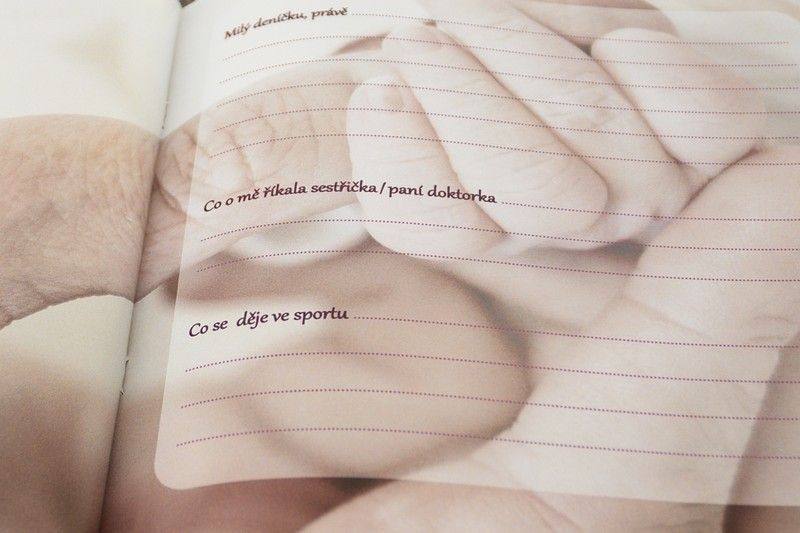 Milý deníčku, právě
Co o mě říkala sestřička/paní doktorka
Co se děje ve sportu